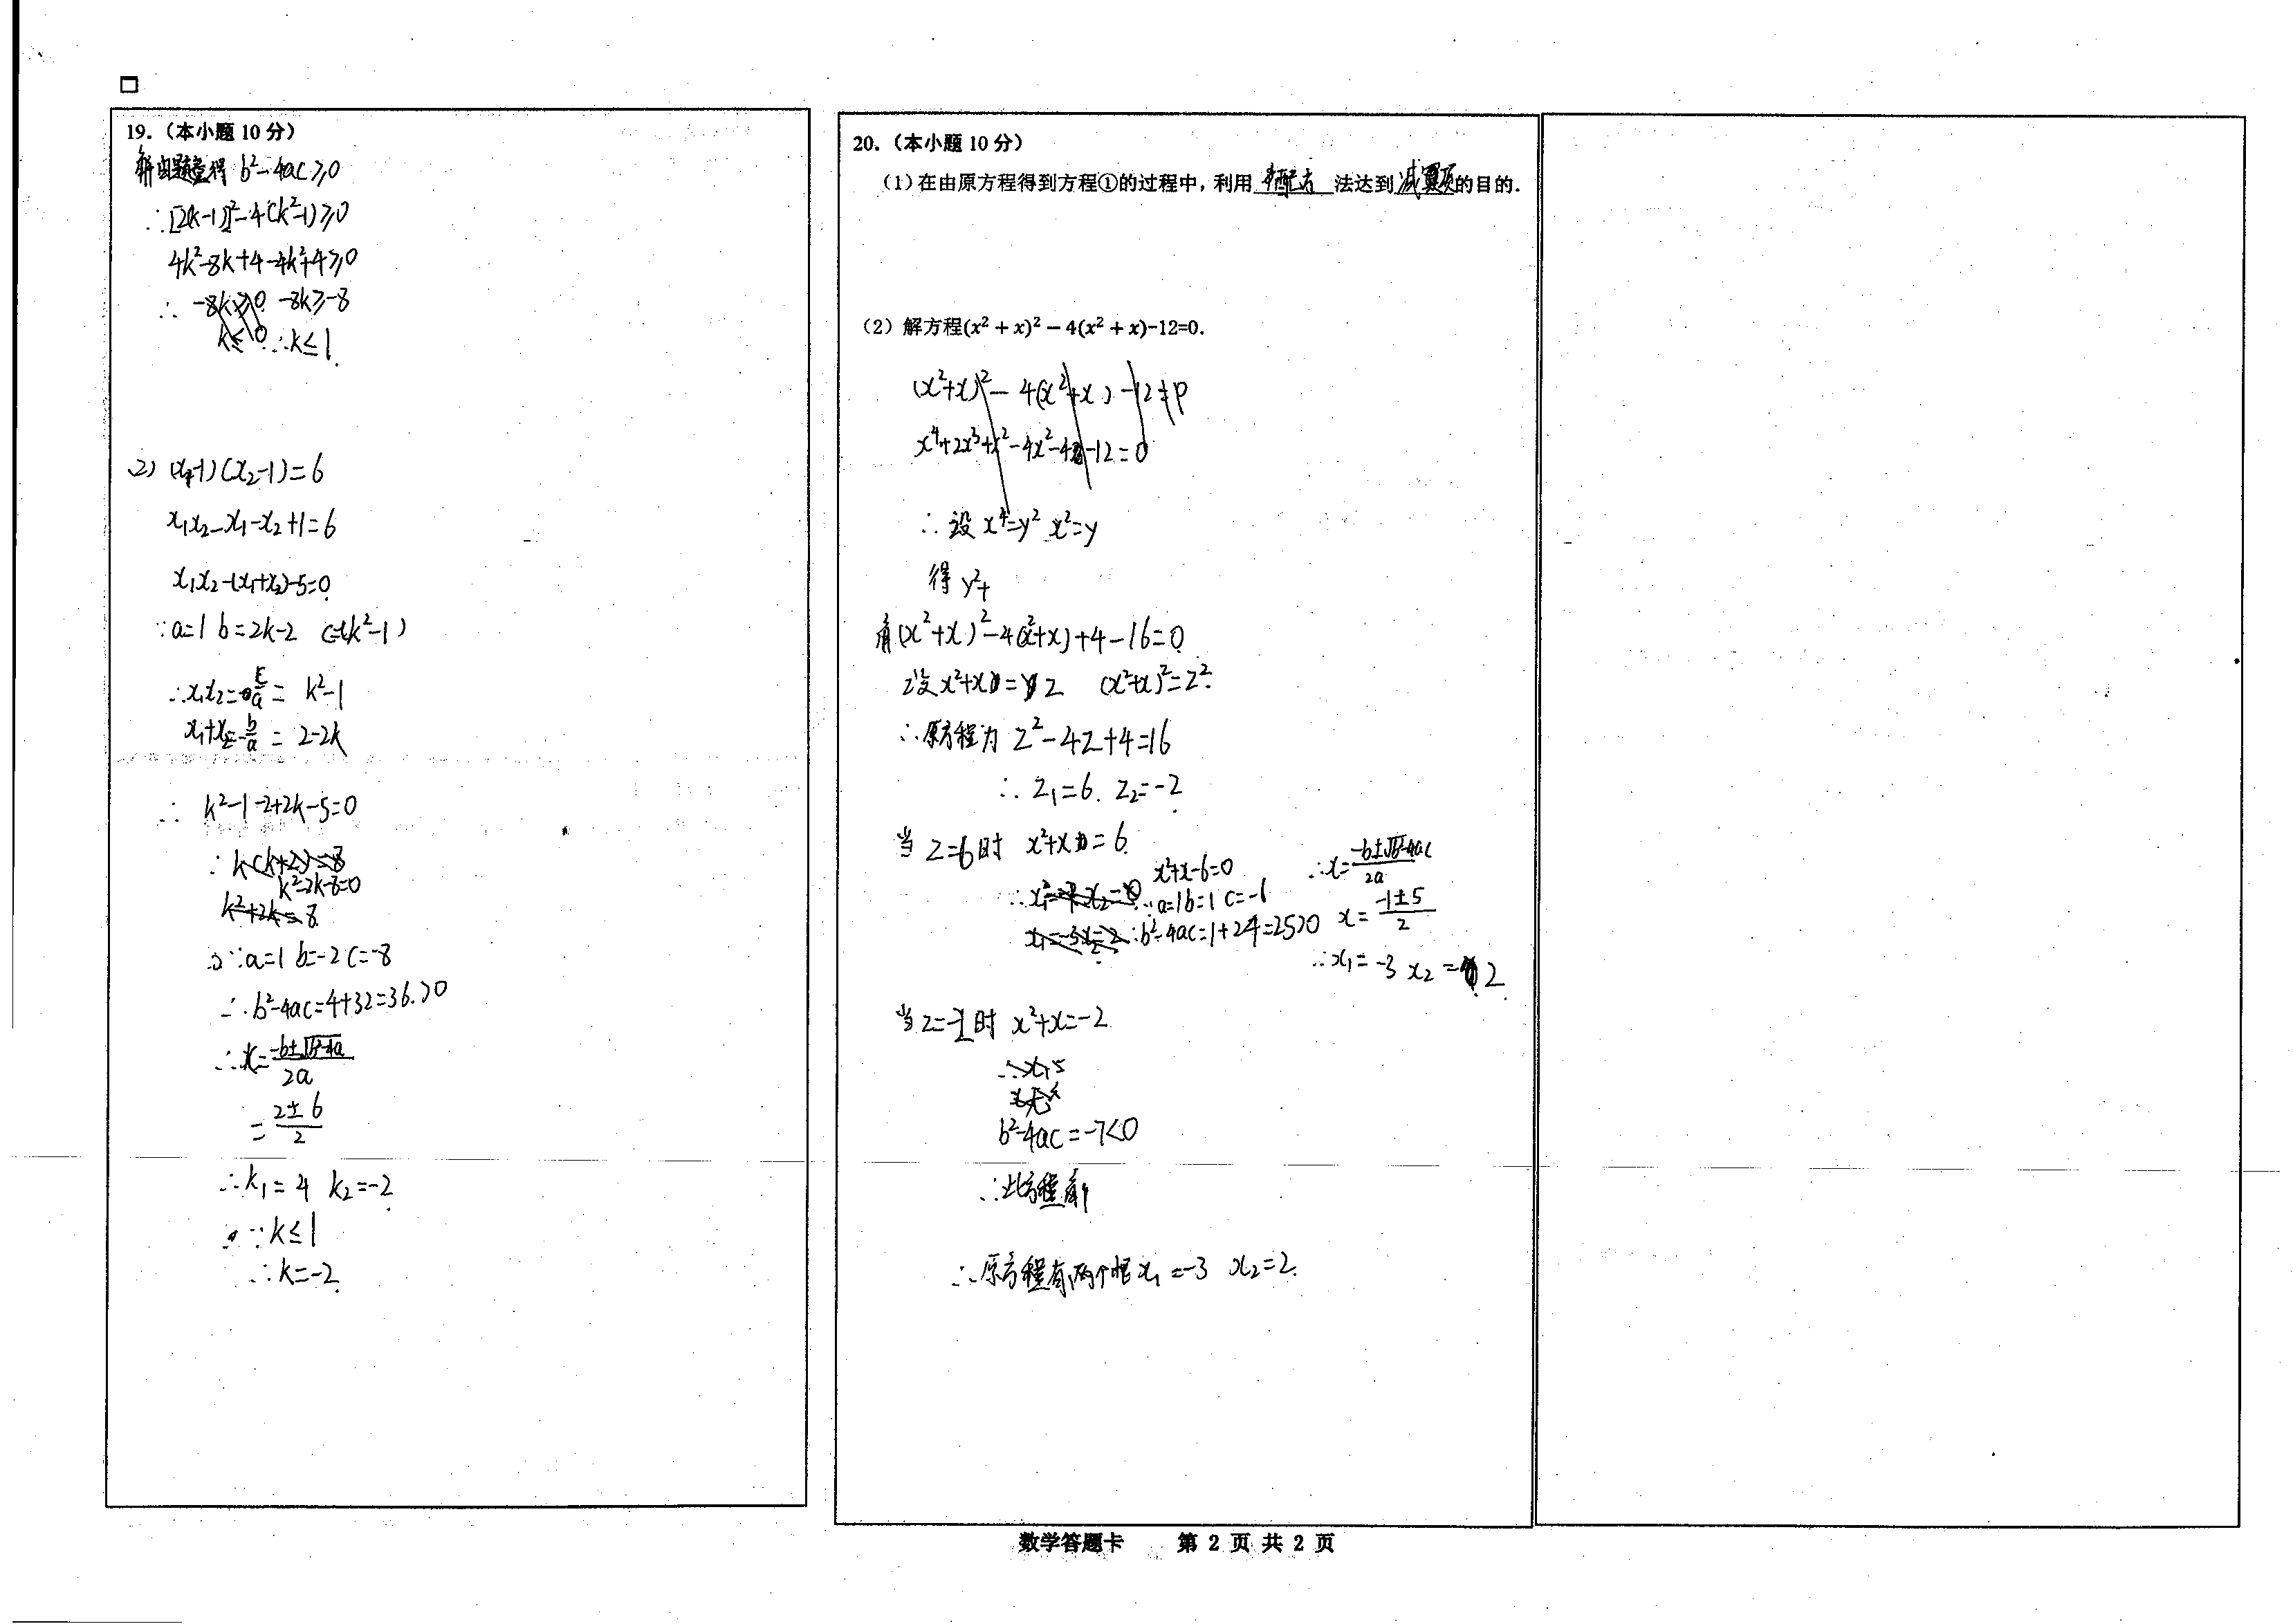 19.（本小题 10 分）
解由题意得 b²-4ac≥0
∴[2(k-1)]²-4(k²-1)≥0
4k²-8k+4-4k²+4≥0
∴ -8k≥0 -8k≥-8
k≤0 ∴k≤1
2) (x₁-1)(x₂-1)=6
x₁x₂-x₁-x₂+1=6
x₁x₂-(x₁+x₂)-5=0
∵a=1 b=2k-2 c=(k²-1)
∴x₁x₂=c/a= k²-1
x₁+x₂=-b/a = 2-2k
∴ k²-1-2+2k-5=0
∴k(k+2)=8
k²-2k-8=0
k²+2k=8
∵a=1 b=-2 c=-8
∴b²-4ac=4+32=36>0
∴k=(-b±√b²-4a)/2a
=(2±6)/2
∴k₁=4 k₂=-2
∵k≤1
∴k=-2
20.（本小题 10 分）
（1）在由原方程得到方程①的过程中，利用 配方 法达到 减 的目的.
（2）解方程(x² + x)² − 4(x² + x)-12=0.
(x²+x)²-4(x²+x)-12=0
x⁴+2x³+x²-4x²-4x-12=0
∴设 x⁴=y² x²=y
得 y²+
(x²+x)²-4(x²+x)+4-16=0
设x²+x=z (x²+x)²=z²
∴原方程为 z²-4z+4=16
∴z₁=6. z₂=-2
当z=6时 x²+x=6
x²+x-6=0
∵a=1 b=1 c=-6
x₁=-3 x₂=2 ∴b²-4ac=1+24=25>0
∴x=(-b±√b²-4ac)/2a
x=(-1±5)/2
∴x₁=-3 x₂=2
当z=-2时 x²+x=-2
b²-4ac=-7<0
∴此方程
∴原方程有两个根x₁=-3 x₂=2.
数学答题卡 第 2 页 共 2 页